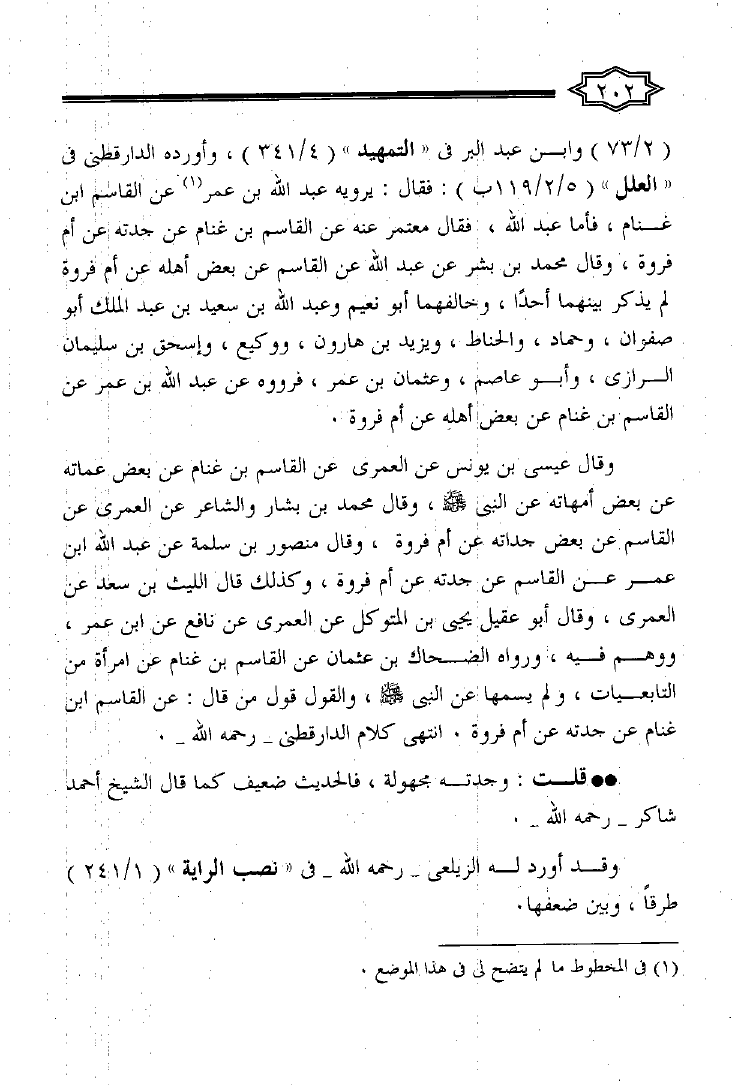 ٢٠٢
( ٧٣/٢ ) وابن عبد البر فى « التمهيد » ( ٣٤١/٤ ) ، وأورده الدارقطنى فى
« العلل » ( ١١٩/٢/٥ب ) : فقال : يرويه عبد الله بن عمر(١) عن القاسم ابن
غنام ، فأما عبد الله ، فقال معتمر عنه عن القاسم بن غنام عن جدته عن أم
فروة ، وقال محمد بن بشر عن عبد الله عن القاسم عن بعض أهله عن أم فروة
لم يذكر بينهما أحدًا ، وخالفهما أبو نعيم وعبد الله بن سعيد بن عبد الملك أبو
صفوان ، وحماد ، والخناط ، ويزيد بن هارون ، ووكيع ، وإسحق بن سليمان
الرازى ، وأبو عاصم ، وعثمان بن عمر ، فرووه عن عبد الله بن عمر عن
القاسم بن غنام عن بعض أهله عن أم فروة .
وقال عيسى بن يونس عن العمرى عن القاسم بن غنام عن بعض عماته
عن بعض أمهاته عن النبى ﷺ ، وقال محمد بن بشار والشاعر عن العمرى عن
القاسم عن بعض جداته عن أم فروة ، وقال منصور بن سلمة عن عبد الله ابن
عمر عن القاسم عن جدته عن أم فروة ، وكذلك قال الليث بن سعد عن
العمرى ، وقال أبو عقيل يحيى بن المتوكل عن العمرى عن نافع عن ابن عمر ،
ووهم فيه ، ورواه الضحاك بن عثمان عن القاسم بن غنام عن امرأة من
التابعيات ، ولم يسمها عن النبى ﷺ ، والقول قول من قال : عن القاسم ابن
غنام عن جدته عن أم فروة . انتهى كلام الدارقطنى _ رحمه الله _ .
●● قلت : وجدته مجهولة ، فالحديث ضعيف كما قال الشيخ أحمد
شاكر _ رحمه الله _ .
وقد أورد له الزيلعى _ رحمه الله _ فى « نصب الراية » ( ٢٤١/١ )
طرقاً ، وبين ضعفها.
(١) فى المخطوط ما لم يتضح لى فى هذا الموضع .